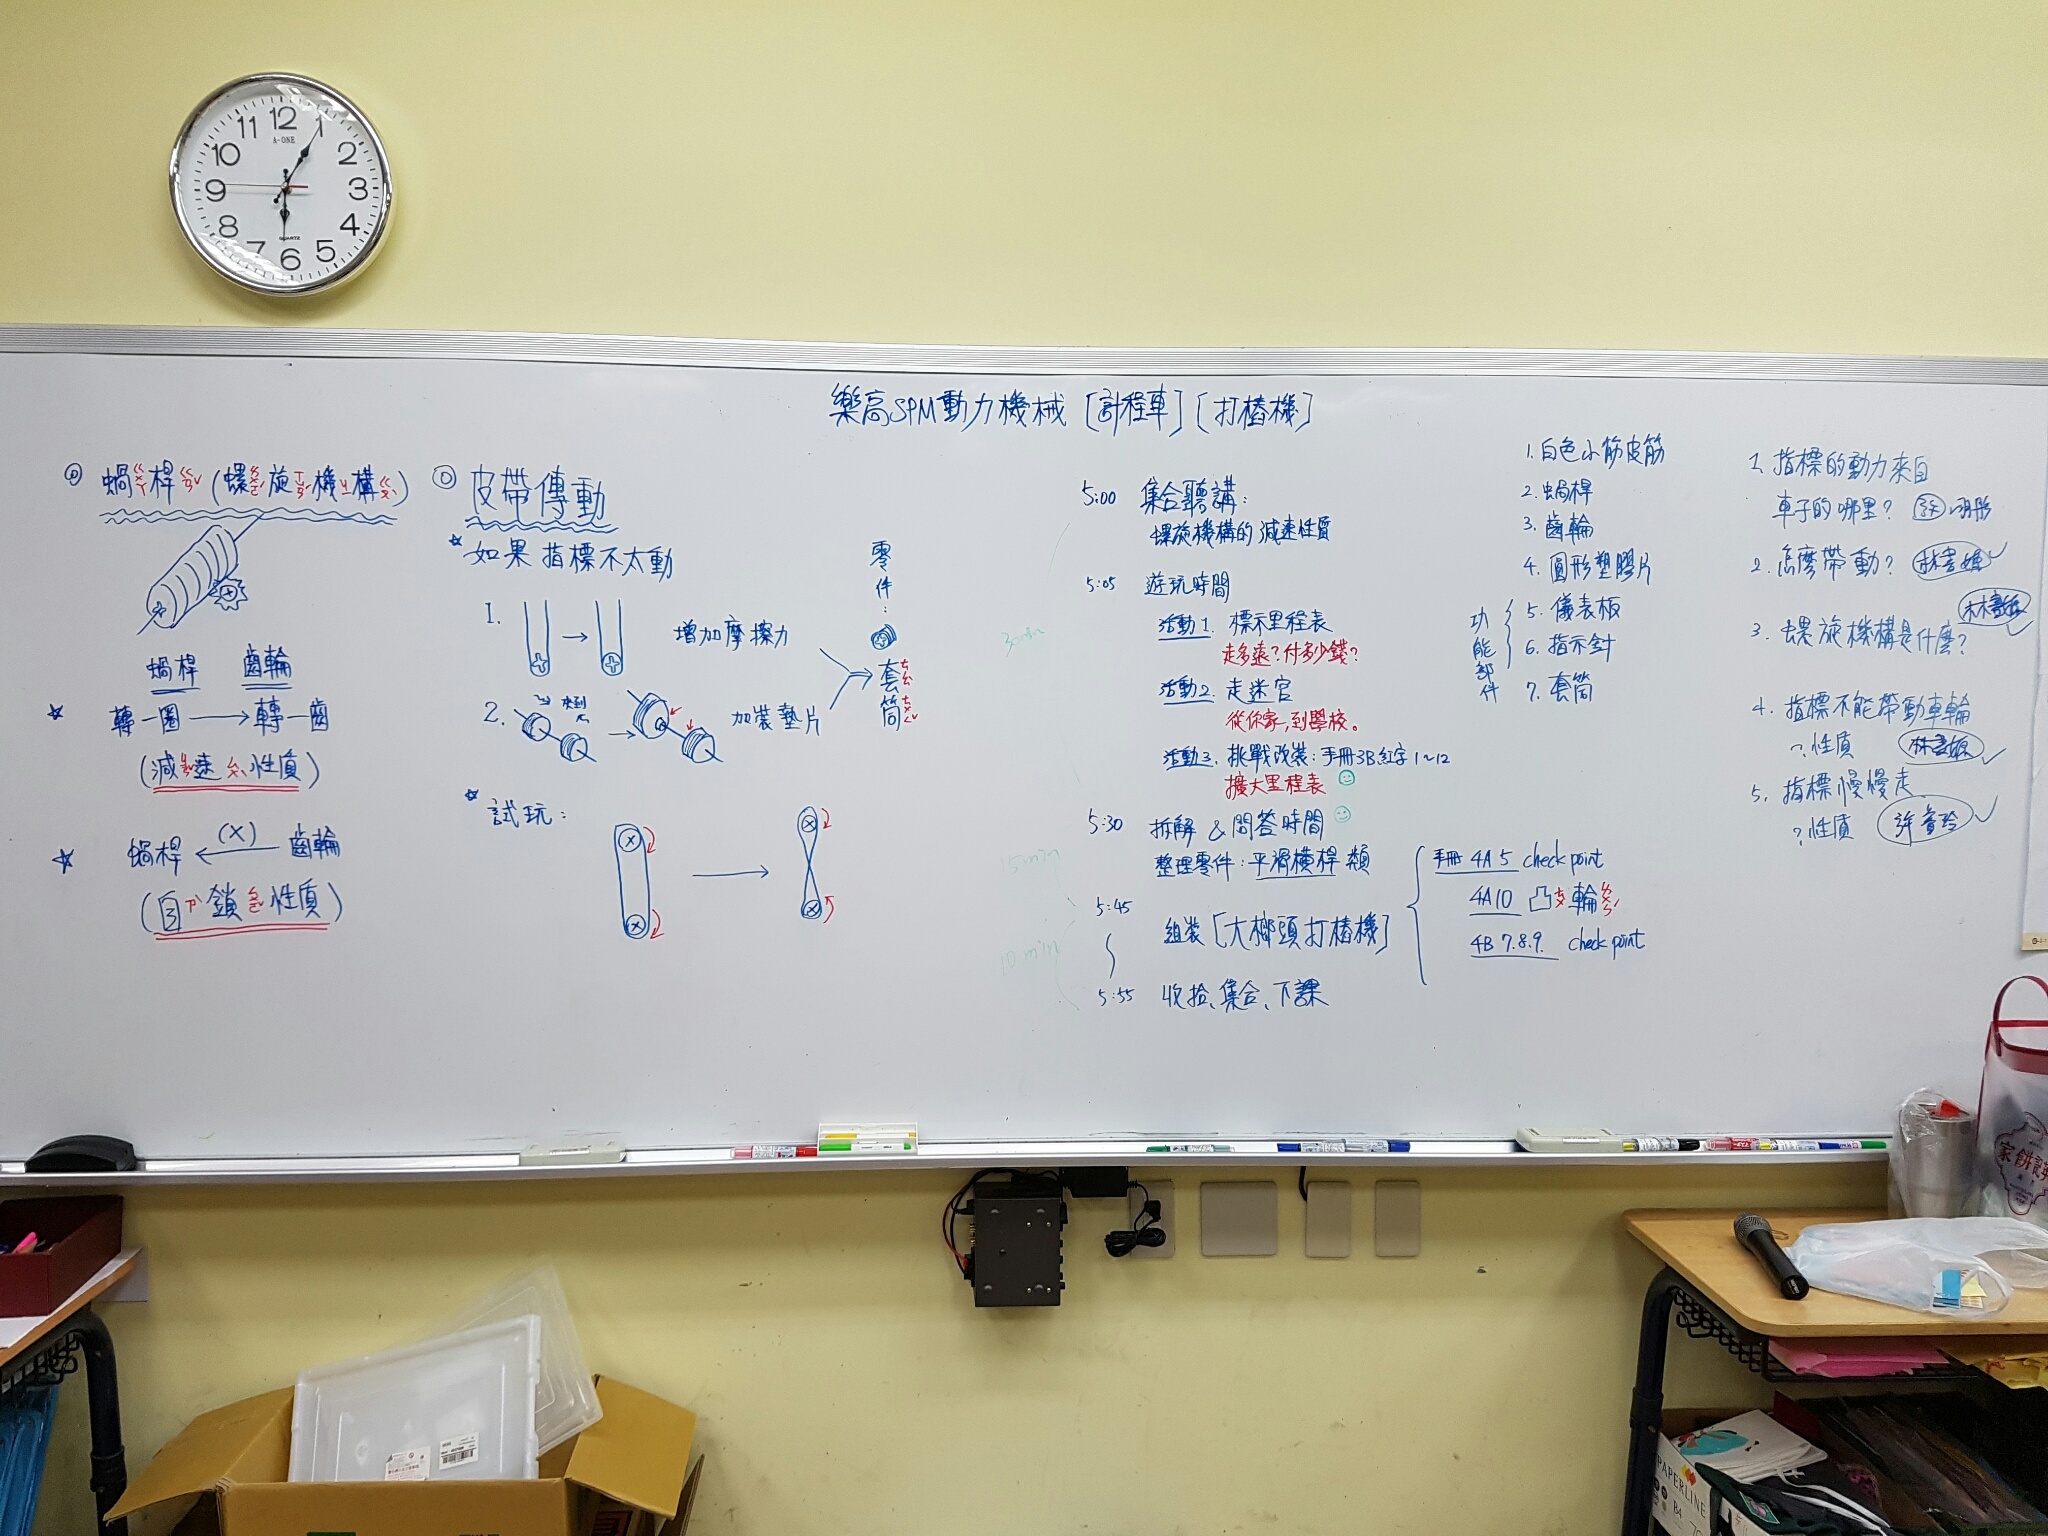 12
1
2
3
4
5
6
7
8
9
10
11
A-ONE
QUARTZ
樂高SPM動力機械 [計程車] [打樁機]
蝸ㄍㄨㄚ桿ㄍㄢˇ (螺ㄌㄨㄛˊ旋ㄒㄩㄢˊ機ㄐㄧ構ㄍㄡˋ)
蝸桿 齒輪
☆ 轉一圈 → 轉一齒
(減ㄐㄧㄢˇ速ㄙㄨˋ性質)
☆ 蝸桿 ←(X) 齒輪
(自ㄗˋ鎖ㄙㄨㄛˇ性質)
皮帶傳動
☆如果指標不太動
1. → 增加摩擦力
2. → 加裝墊片
零件:
套ㄊㄠˋ
筒ㄊㄨㄥˇ
☆ 試玩:
5:00 集合聽講:
螺旋機構的減速性質
5:05 遊玩時間
活動1. 標示里程表
走多遠?付多少錢?
活動2. 走迷宮
從你家,到學校。
活動3. 挑戰改裝:手冊3B紅字1~12
擴大里程表
5:30 拆解 & 問答時間
整理零件:平滑橫桿類
5:45
組裝[大榔頭打樁機]
5:55 收拾、集合、下課
30min
15min
10min
手冊 4A 5 check point
4A10 凸ㄊㄨ輪ㄌㄨㄣˊ
4B 7.8.9. check point
1. 白色小筋皮筋
2. 蝸桿
3. 齒輪
4. 圓形塑膠片
5. 儀表板
6. 指示針
7. 套筒
功能部件
1. 指標的動力來自
車子的哪里?
2. 怎麼帶動?
3. 螺旋機構是什麼?
4. 指標不能帶動車輪
?性質
5. 指標慢慢走
?性質
家餅
PAPERLINE
B4
70